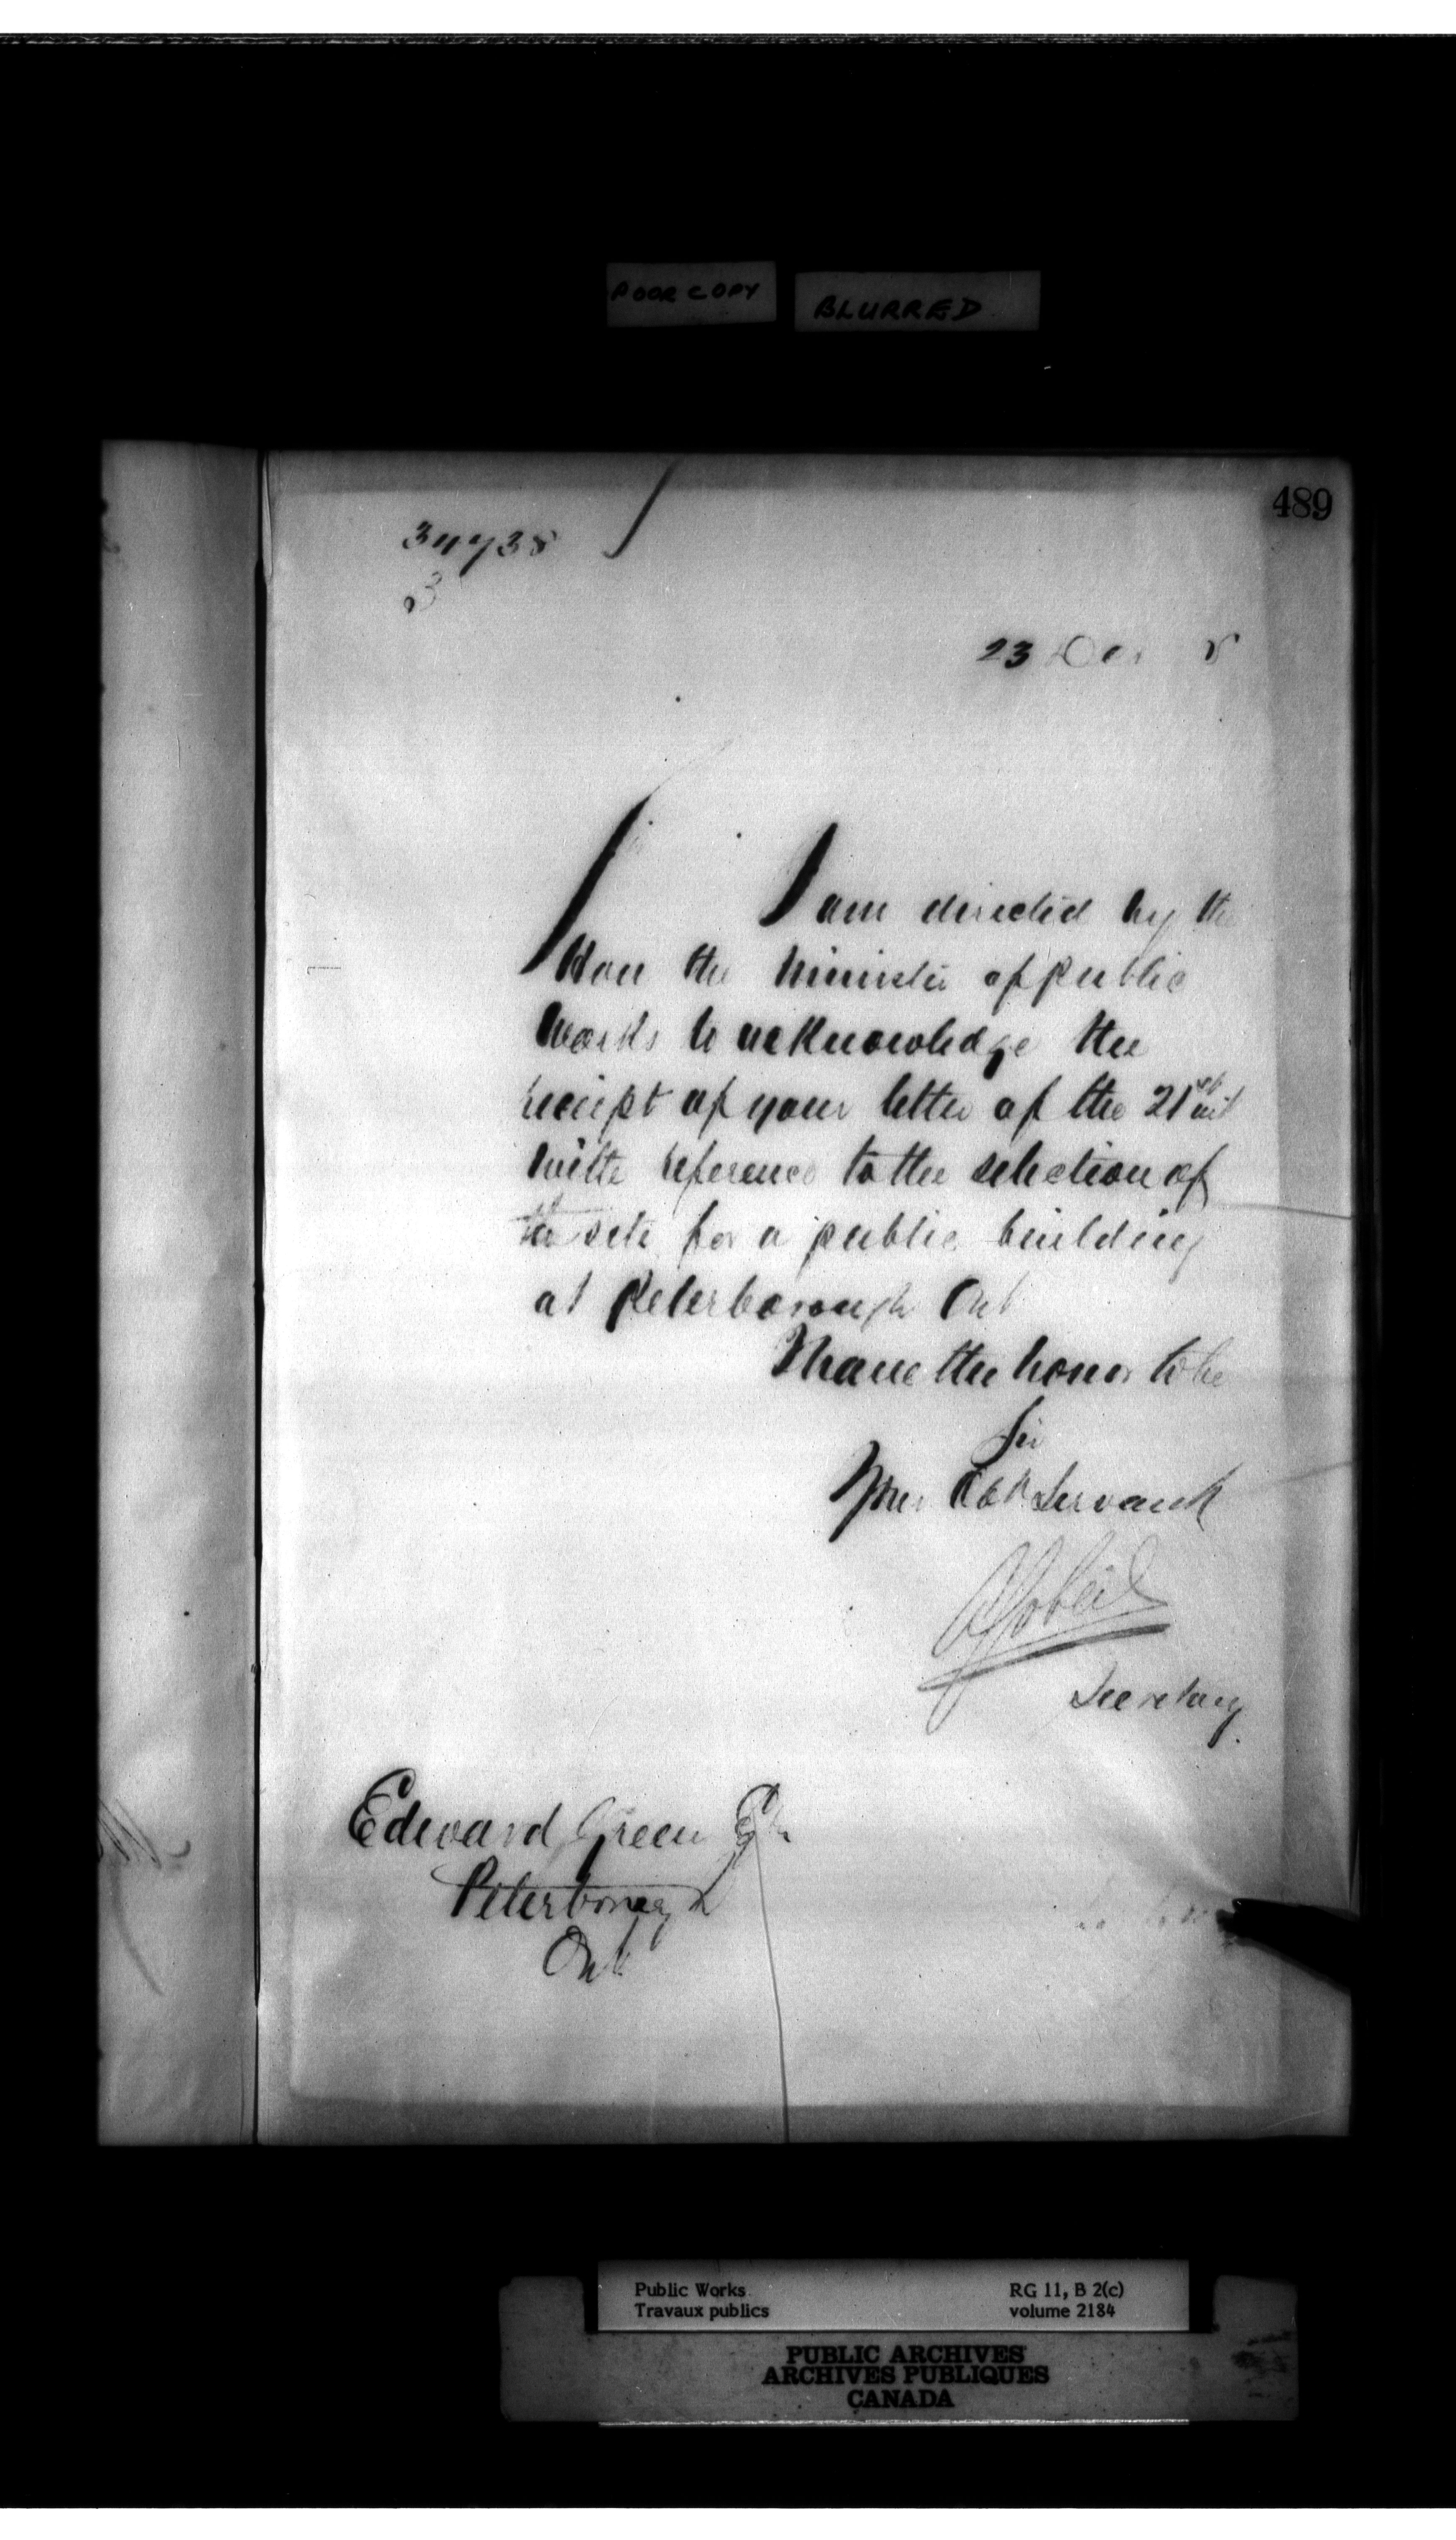 POOR COPY
BLURRED
489
34738
3
23 Dec 5
Sir
I am directed by the
Hon the Minister of public
Works to acknowledge the
receipt of your letter of the 21st inst
with reference to the selection of
a site for a public building
at Peterborough Ont
I have the honor to be
Sir
Your Obt Servant
A Gobeil
Secretary.
Edward Green Esq
Peterborough
Ont
Public Works
Travaux publics
RG 11, B 2(c)
volume 2184
PUBLIC ARCHIVES
ARCHIVES PUBLIQUES
CANADA